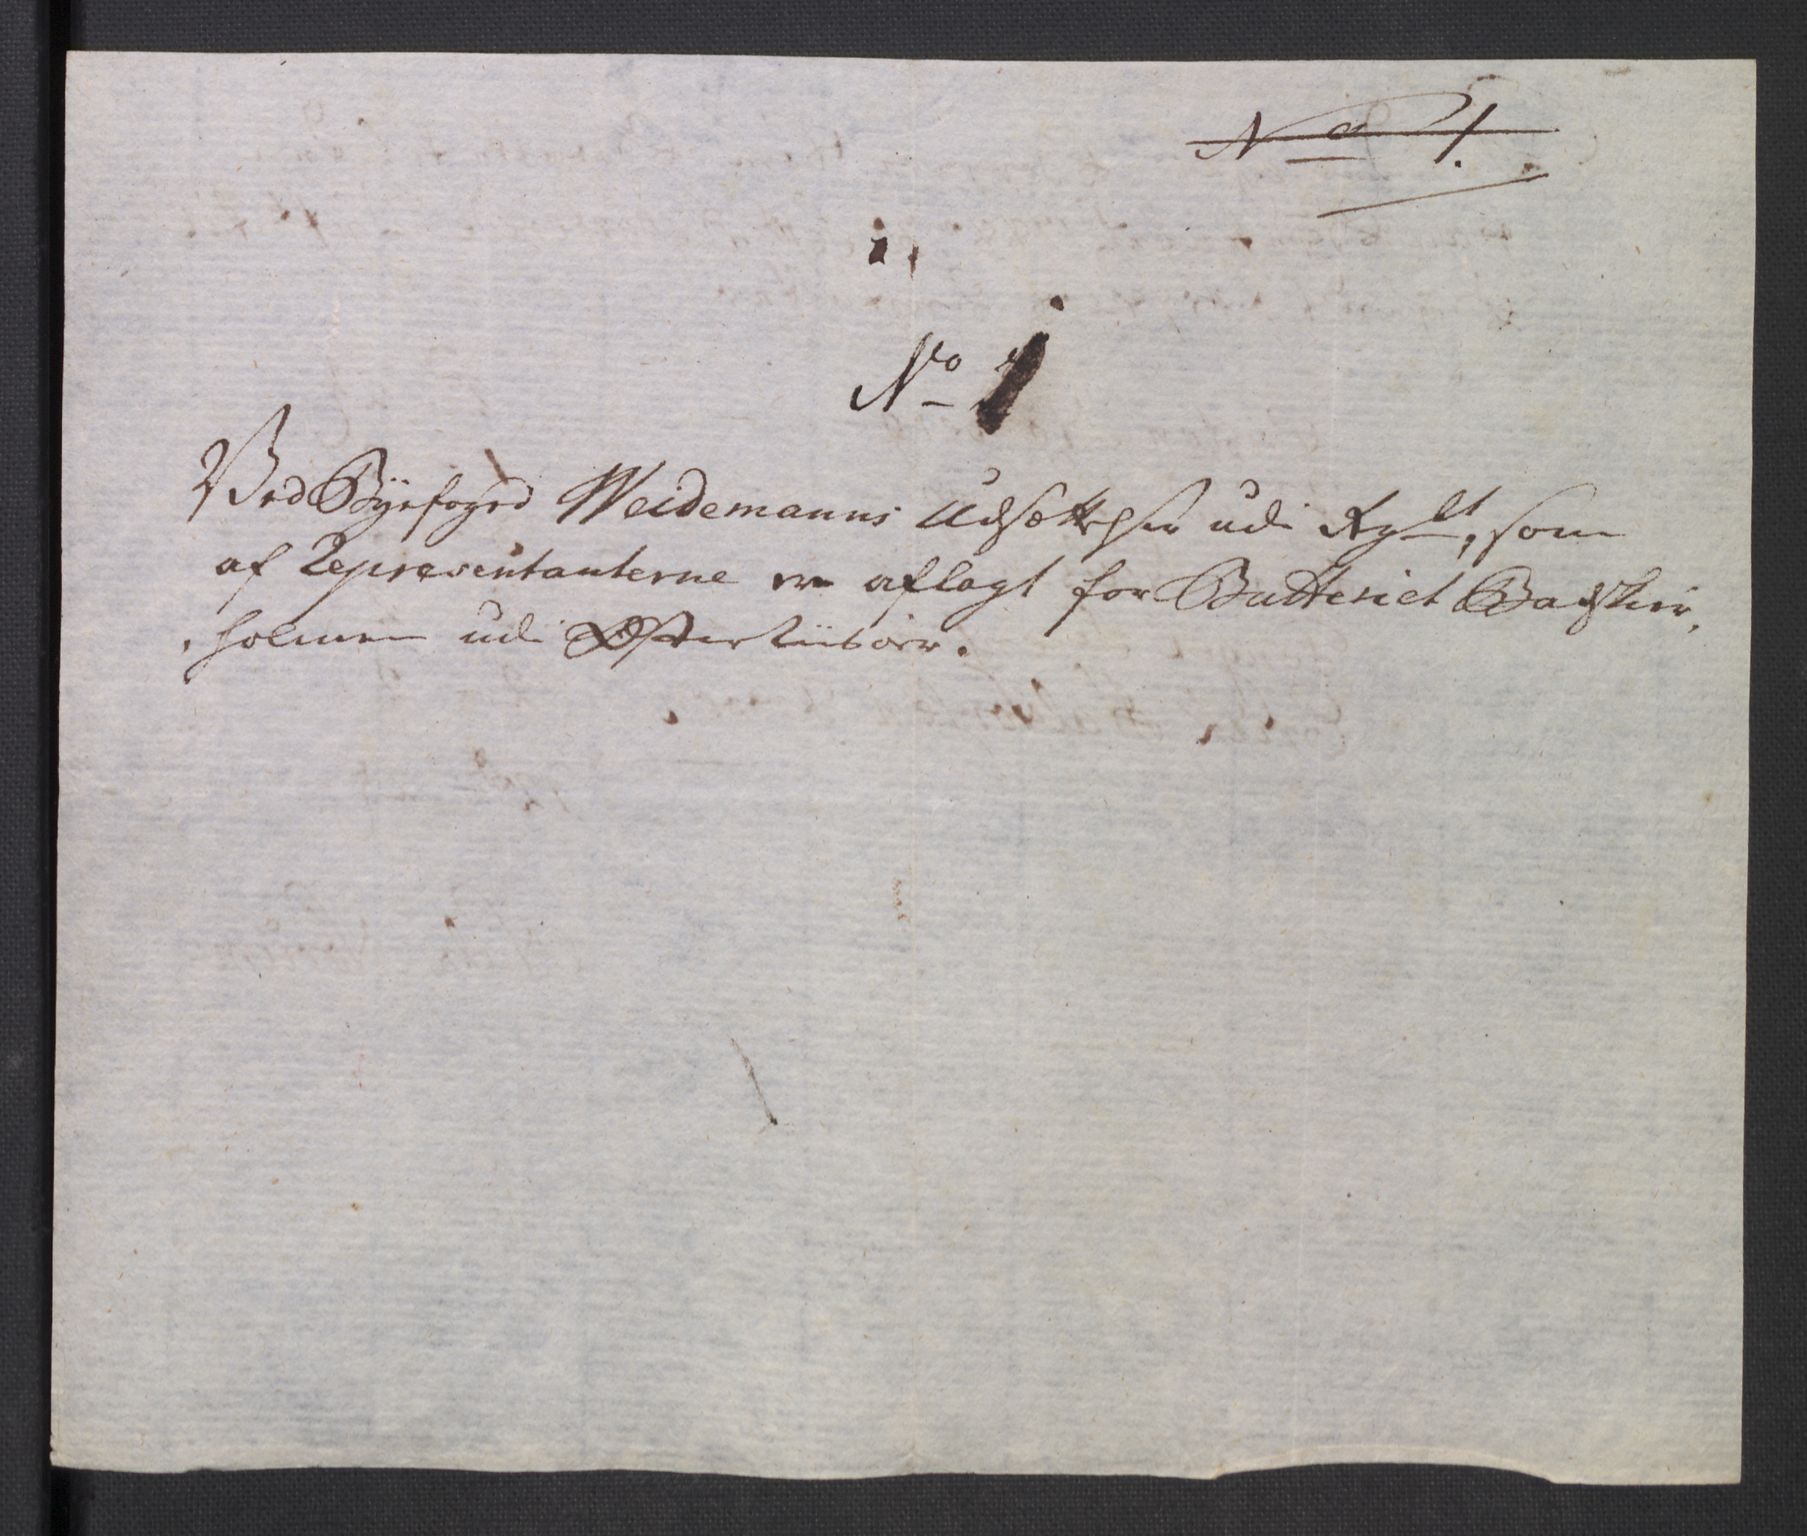 No 1.
No 1
Ved Byefoged Weidemanns Udsættelser udi Rgn, som
af Repræsentanterne er aflagt for Batteriet Badskier,
holmen udi Østerriisøer.